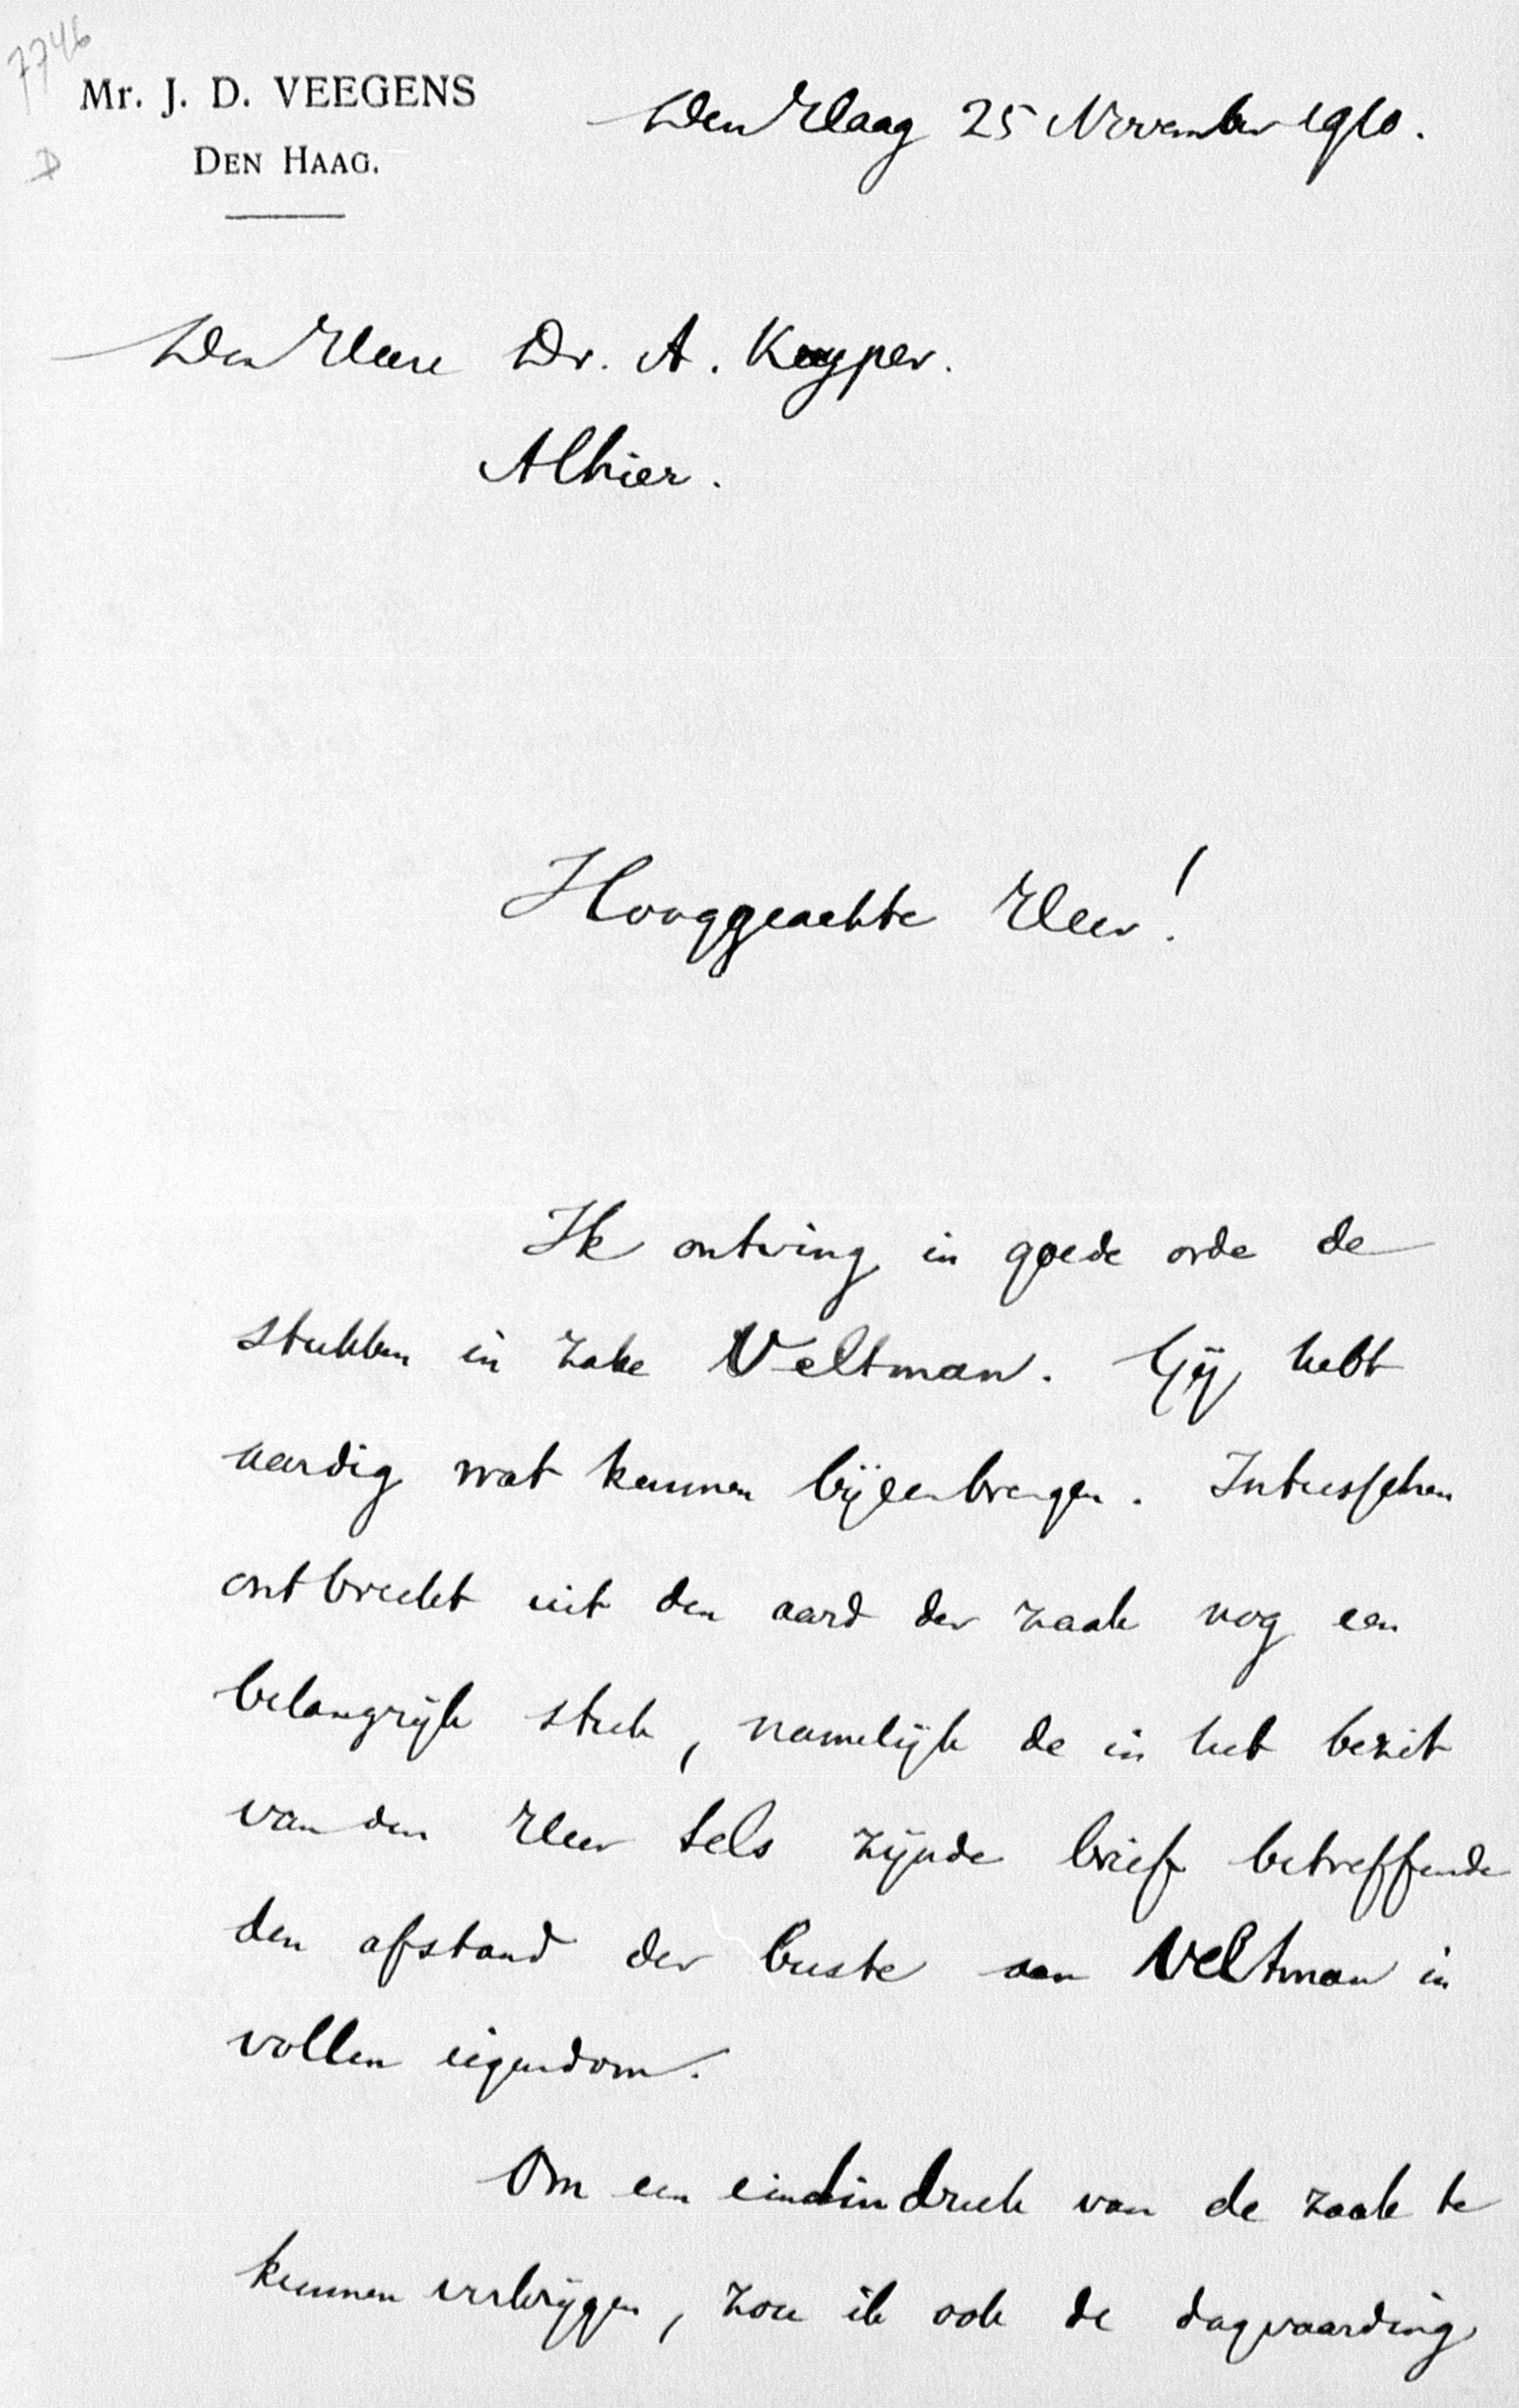 7746
Mr. J. D. VEEGENS
DEN HAAG.
Den Haag 25 November 1910.
Den Heere Dr. A. Kuyper.
Alhier.
Hooggeachte Heer!
Ik ontving in goede orde de
stukken in zake Veltman. Gij hebt
aardig wat kunnen bijeenbrengen. Intusschen
ontbreekt uit den aard der zaak nog een
belangrijk stuk, namelijk de in het bezit
van den Heer Sels zijnde brief betreffende
den afstand der buste aan Veltman in
vollen eigendom.
Om een eindindruk van de zaak te
kunnen verkrijgen, zou ik ook de dagvaarding